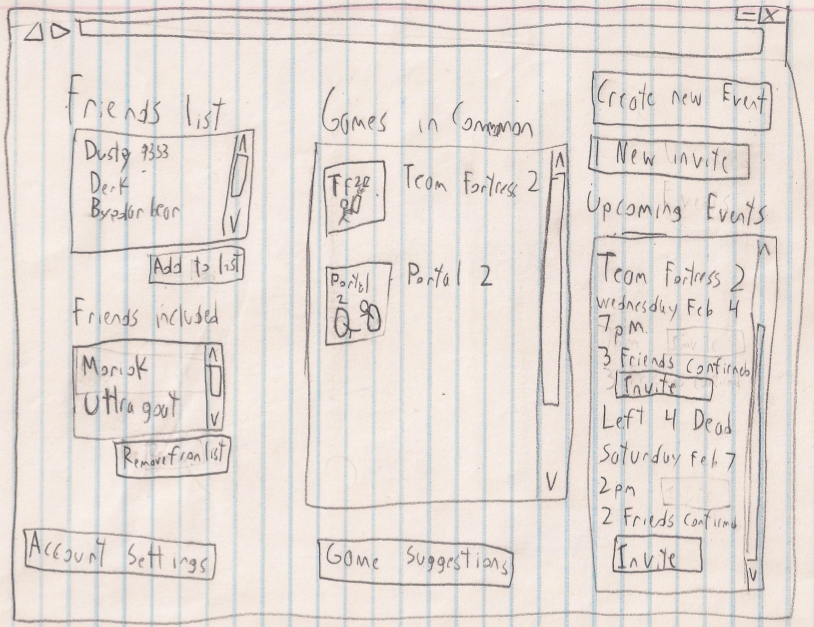 Friends list
Dusty 9353
Derk
Add to list
Friends included
Moriok
Ultra gout
Remove from list
Account Settings
Games in Common
TF2
Team Fortress 2
Portal
2
Portal 2
Game Suggestions
Create new Event
1 New invite
Upcoming Events
Team Fortress 2
wednesday Feb 4
7 pm
3 Friends Confirmed
Invite
Left 4 Dead
Saturday Feb 7
2 pm
2 Friends Confirmd
Invite